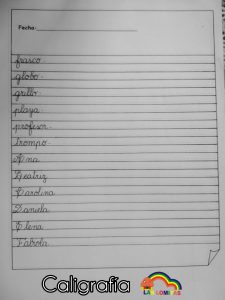 Fecha:
frasco.
globo.
grillo.
playa.
profesor.
trompo.
Ana
Beatriz
Carolina
Daniela
Elena
Fabiola
Caligrafía
LAS LOMITAS